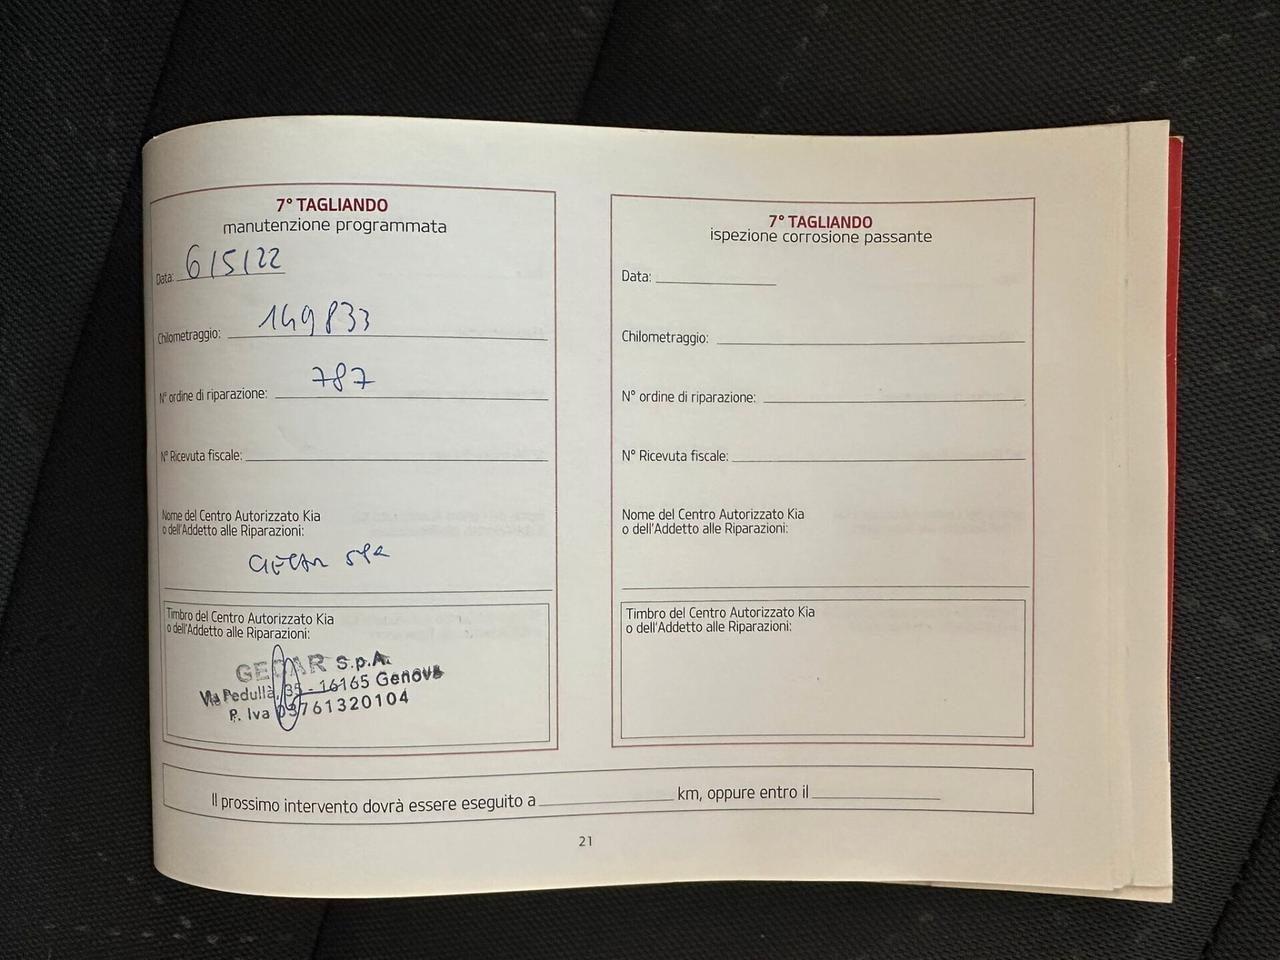 7° TAGLIANDO
manutenzione programmata
Data: 6/5/22
Chilometraggio: 149833
N° ordine di riparazione: 787
N° Ricevuta fiscale:
Nome del Centro Autorizzato Kia
o dell'Addetto alle Riparazioni:
GECAR SPA
Timbro del Centro Autorizzato Kia
o dell'Addetto alle Riparazioni:
GECAR S.p.A.
Via Pedullà, 35 - 16165 Genova
P. Iva 03761320104
7° TAGLIANDO
ispezione corrosione passante
Data:
Chilometraggio:
N° ordine di riparazione:
N° Ricevuta fiscale:
Nome del Centro Autorizzato Kia
o dell'Addetto alle Riparazioni:
Timbro del Centro Autorizzato Kia
o dell'Addetto alle Riparazioni:
Il prossimo intervento dovrà essere eseguito a km, oppure entro il
21